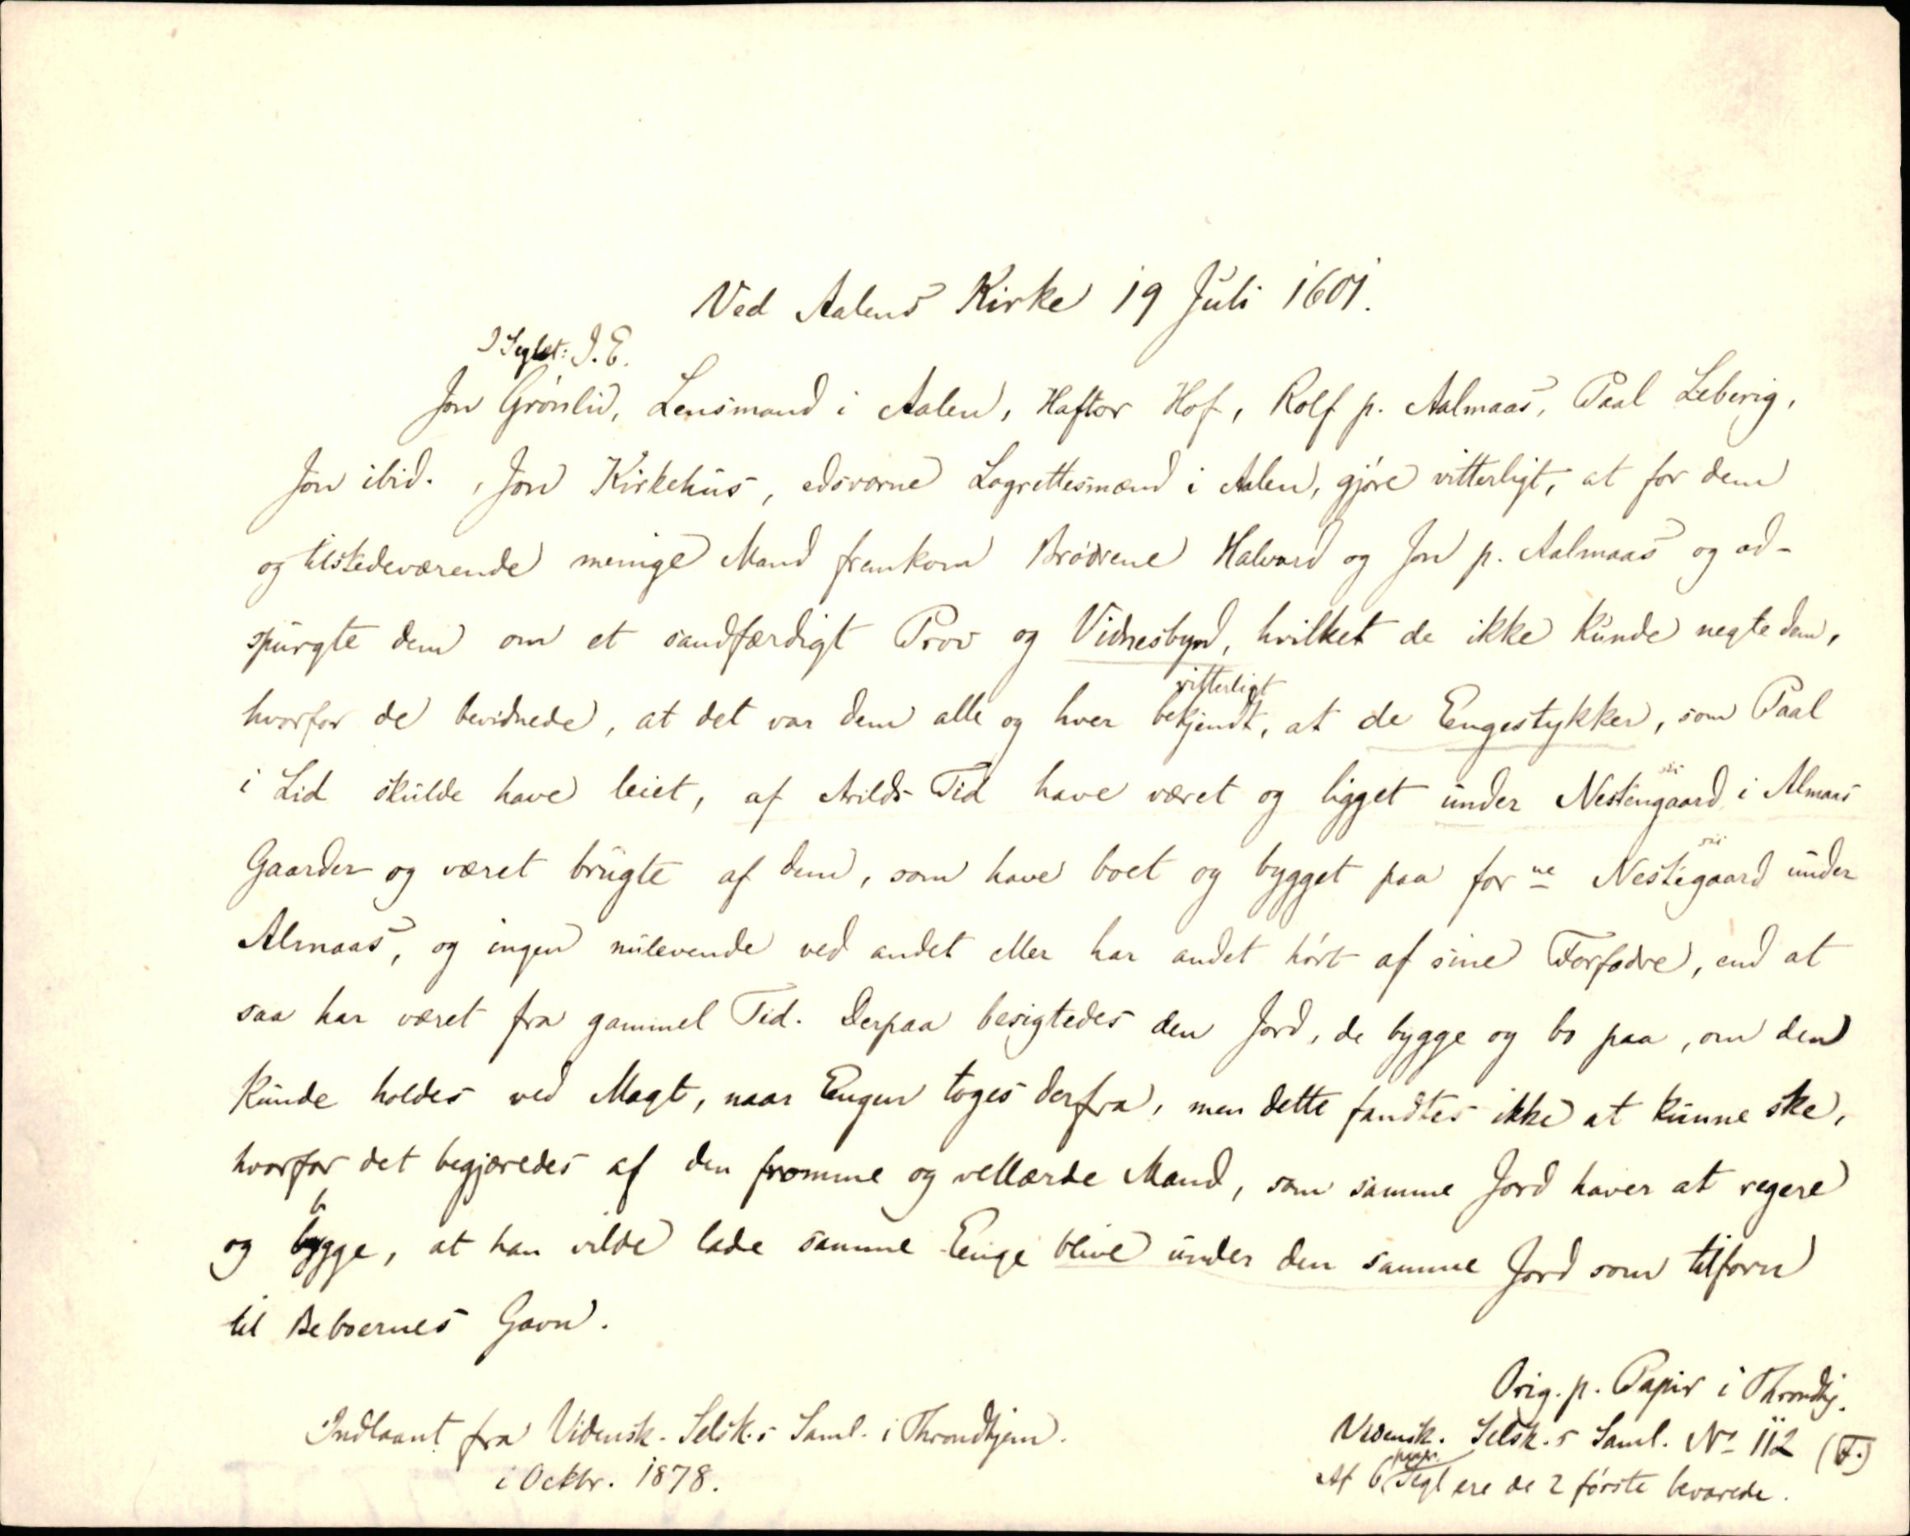 Ved Aalens Kirke 19 Juli 1601.
I Seglet: J. E.
Jon Grönlid, Lensmand i Aalen, Haftor Hof, Rolf p. Aalmaas, Paal Leberig,
Jon ibid., Jon Kirkehus, edsvorne Lagrettesmænd i Aalen, gjöre vitterligt, at for dem
og tilstedeværende menige Mand fremkom Brödrene Halvard og Jon p. Aalmaas og ad-
spurgte dem om et sandfærdigt Prov og Vidnesbyrd, hvilket de ikke kunde negte dem,
vitterligt
hvorfor de bevidnede, at det var dem alle og hver bekjendt, at de Engestykker, som Paal
i Lid skulde have leiet, af Arilds Tid have været og ligget under Nestengaard i Almaas
Gaarder og været brugte af dem, som have boet og bygget paa forne Nestegaard under
Almaas, og ingen nulevende ved andet eller har andet hört af sine Forfædre, end at
saa har været fra gammel Tid. Derpaa besigtedes den Jord, de bygge og bo paa, om den
kunde holdes ved Magt, naar Engen toges derfra, men dette fandtes ikke at kunne ske,
hvorfor det begjæredes af den fromme og vellærde Mand, som samme Jord haver at regere
b
og bygge, at han vilde lade samme Enge blive under den samme Jord som tilforn
til Beboernes Gavn.
Orig. p. Papir i Throndhj.
Vidensk. Selsk.s Saml. No 112 (F.)
papir
Af 6 Segl ere de 2 förste bevarede.
Indlaant fra Vidensk. Selsk.s Saml. i Throndhjem.
i Octbr. 1878.